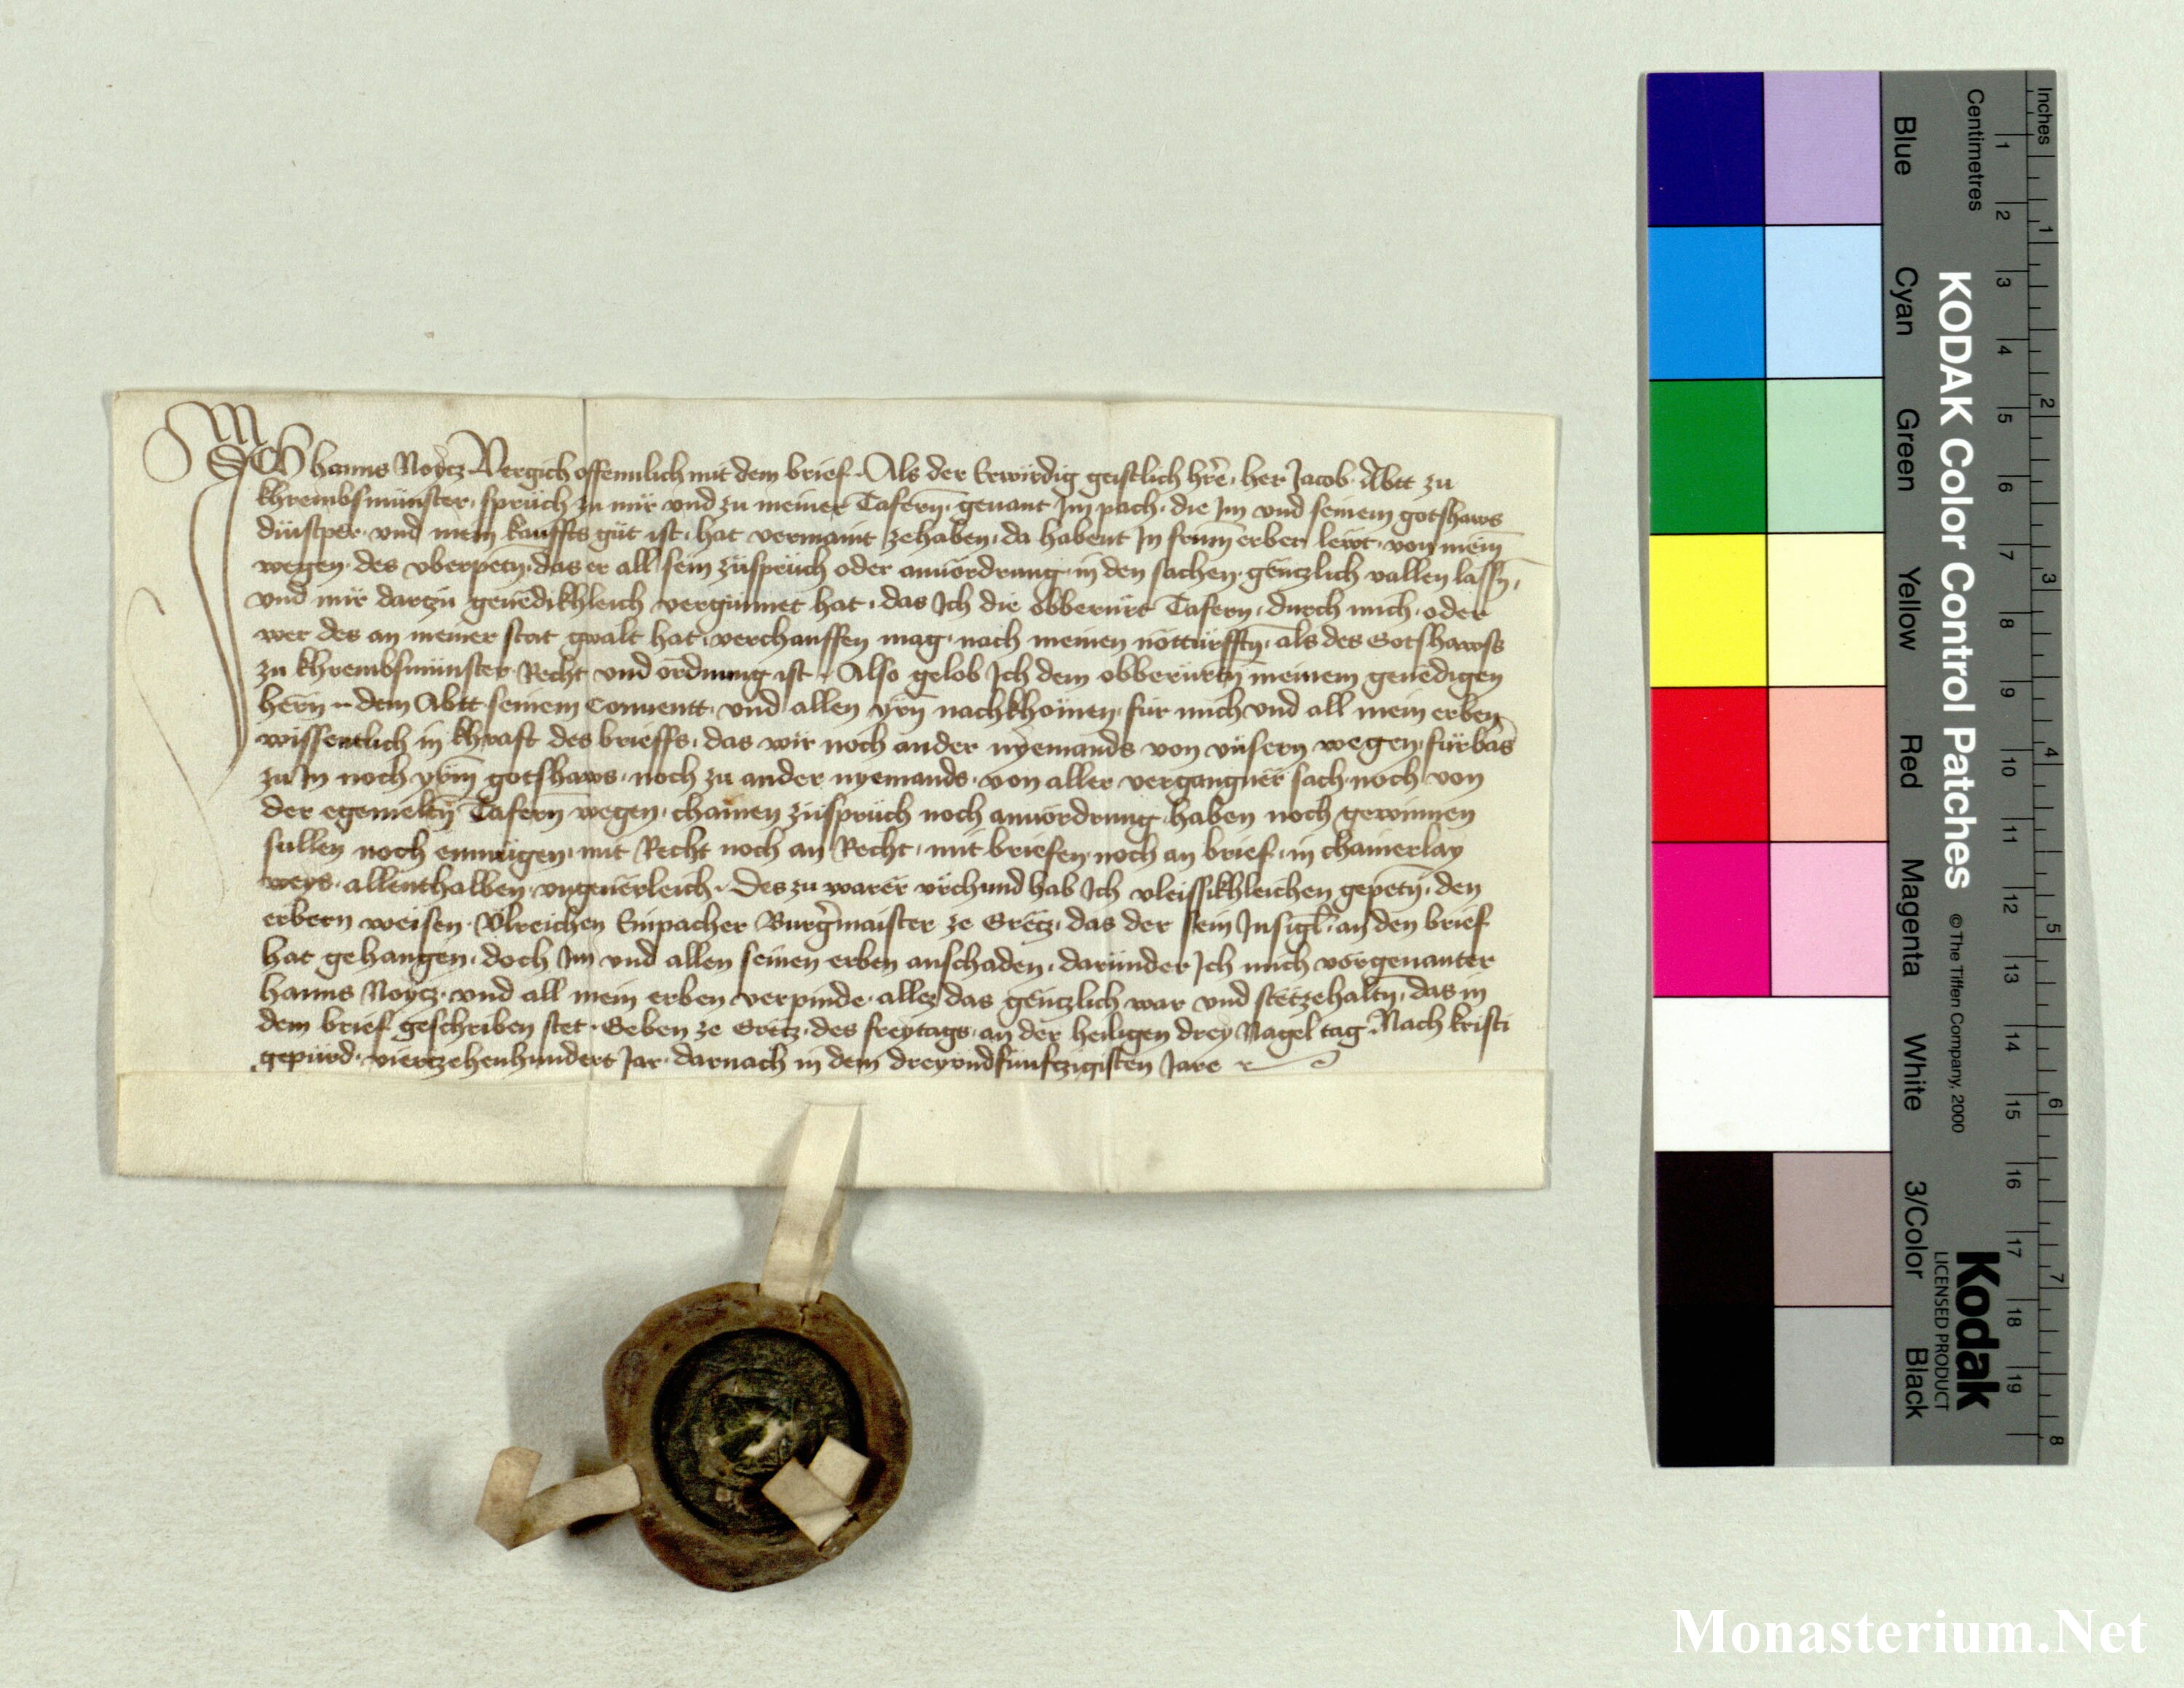 ICH hanns Noytz Vergich offennlich mit dem brief Als der Erwirdig geistlich hre her Jacob Abtt zu
khrembsmünster sprüch zu mir vnd zu meiner Tafern genant Im pach die Im vnd seinem gotshaws
dinstper vnd mein kauffts güt ist hat vermaint zehaben da habent In frum erber lewt von mein
wegen des vberpetn das er all sein züsprüch oder anuordrung in den sachen gentzlich vallen lassn
vnd mir dartzu genedikhleich vergunnet hat das Ich die obberürt Tafern durch mich oder
wer des an meiner stat gwalt hat verchauffen mag nach meinen notturfftn als des Gotshawss
zu khrembsmünster Recht vnd ordnung ist Also gelob Ich dem obberürtn meinem genedigen
hern dem Abtt seinem Conuentt vnd allen yrn nachkhomen für mich vnd all mein erben
wissentlich in khraft des brieffs das wir noch ander nyemands von vnsern wegen fürbas
zu In noch yrm gotshaws noch zu ander nyemands von aller vergangner sach noch von
der egemeltn Tafern wegen chainen züsprüch noch anuordrung haben noch gewinnen
sullen noch enmügen mit Recht noch an Recht mit briefen noch an brief in chainerlay
weys allenthalben vngeuerleich Des zu warer vrchund hab Ich vleissikhleichen gepetn den
erbern weisen Vlreichen Einpacher Burgermaister ze Gretz das der sein Insigl an den brief
hat gehangen doch Im vnd allen seinen erben anschaden darunder Ich mich vorgenanter
hanns Noytz vnd all mein erben verpinde alles das gentzlich war vnd stetzehaltn das in
dem brief geschriben stet Geben ze Gretz des freytags an der heiligen drey Nagel tag Nach kristi
gepürd viertzehenhundert Jar darnach in dem dreyundfunftzigisten Jare
Inches 1 2 3 4 5 6 7 8
Centimetres 1 2 3 4 5 6 7 8 9 10 11 12 13 14 15 16 17 18 19
KODAK Color Control Patches © The Tiffen Company, 2000
Kodak
LICENSED PRODUCT
Blue Cyan Green Yellow Red Magenta White 3/Color Black
Monasterium.Net